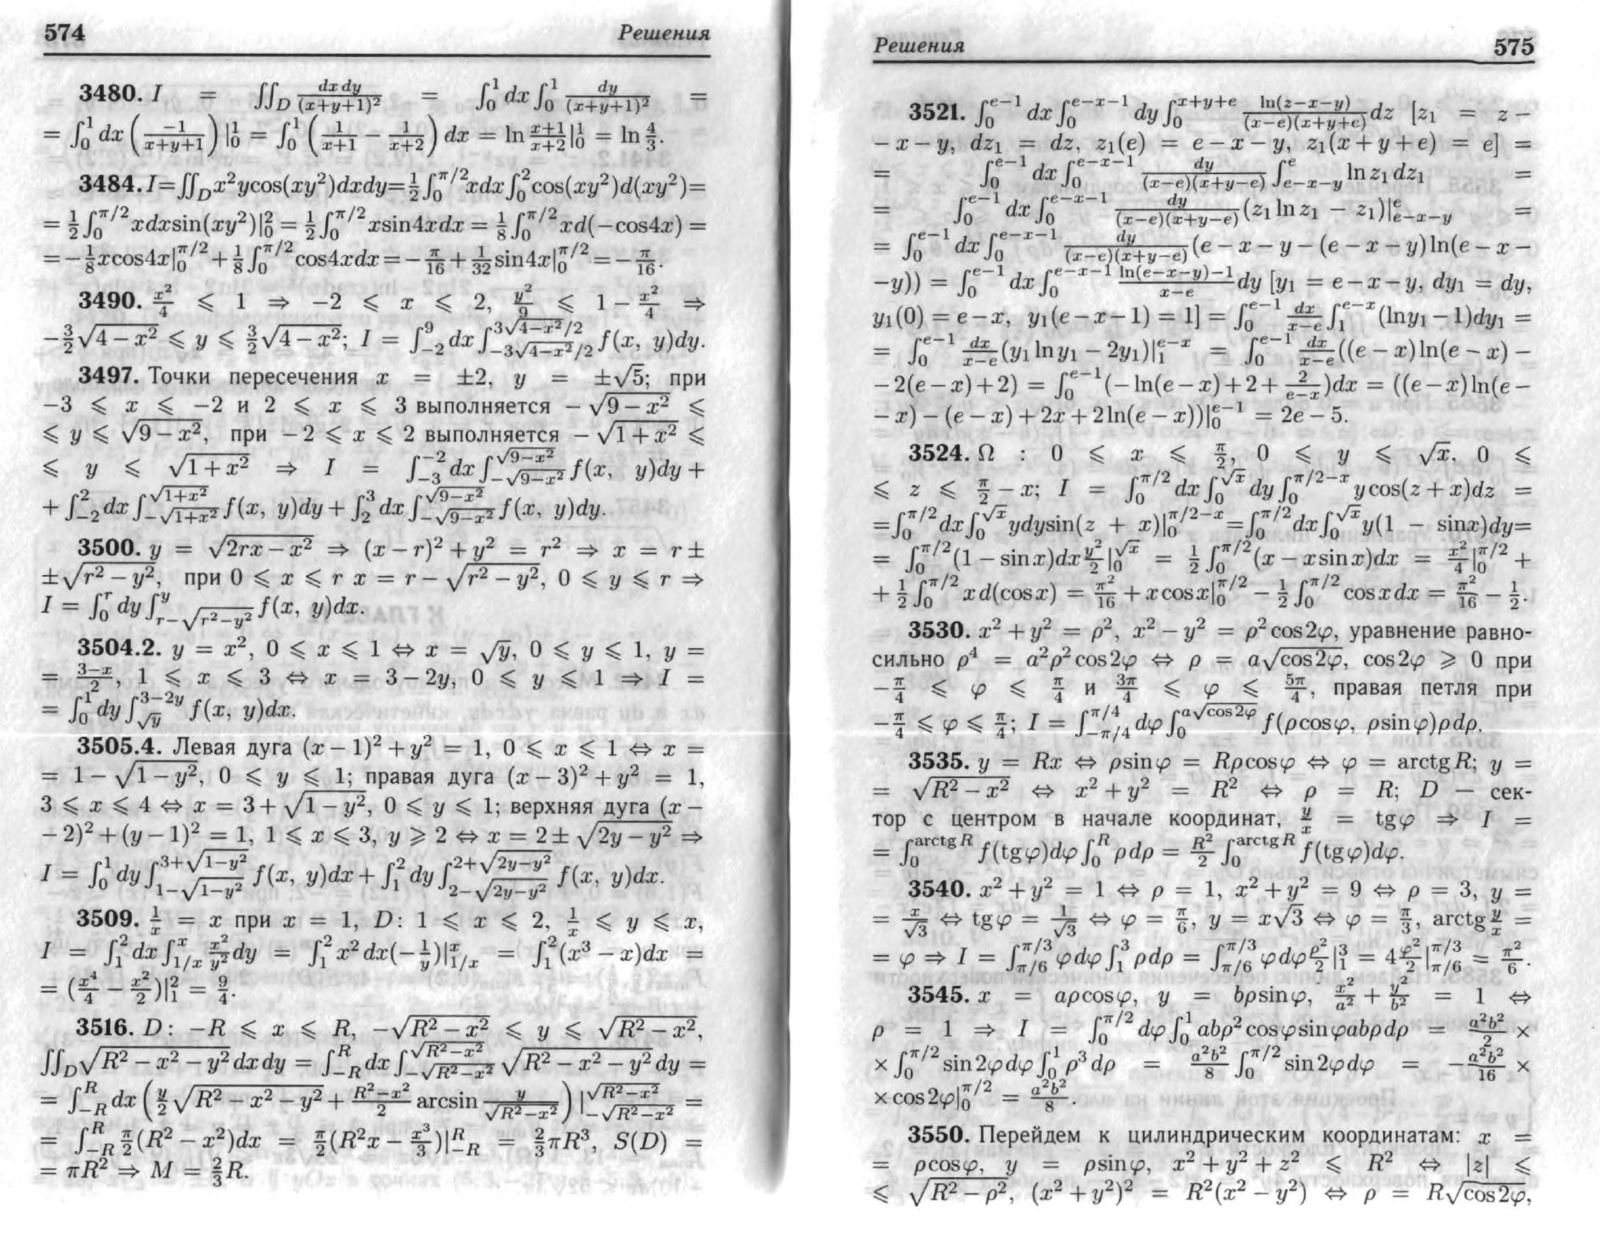 574 Решения
3480. I = ∬_D dxdy/(x+y+1)² = ∫₀¹ dx ∫₀¹ dy/(x+y+1)² =
= ∫₀¹ dx (−1/(x+y+1)) |₀¹ = ∫₀¹ (1/(x+1) − 1/(x+2)) dx = ln (x+1)/(x+2) |₀¹ = ln 4/3.
3484. I=∬_D x²ycos(xy²)dxdy=½∫₀^{π/2} xdx∫₀² cos(xy²)d(xy²)=
= ½∫₀^{π/2} xdxsin(xy²)|₀² = ½∫₀^{π/2} xsin4xdx = ⅛∫₀^{π/2} xd(−cos4x) =
= −⅛xcos4x|₀^{π/2} + ⅛∫₀^{π/2} cos4xdx = −π/16 + 1/32 sin4x|₀^{π/2} = −π/16.
3490. x²/4 ⩽ 1 ⇒ −2 ⩽ x ⩽ 2, y²/9 ⩽ 1 − x²/4 ⇒
−3/2 √(4−x²) ⩽ y ⩽ 3/2 √(4−x²); I = ∫_{−2}^{9} dx ∫_{−3√(4−x²)/2}^{3√(4−x²)/2} f(x, y)dy.
3497. Точки пересечения x = ±2, y = ±√5; при
−3 ⩽ x ⩽ −2 и 2 ⩽ x ⩽ 3 выполняется −√(9−x²) ⩽
⩽ y ⩽ √(9−x²), при −2 ⩽ x ⩽ 2 выполняется −√(1+x²) ⩽
⩽ y ⩽ √(1+x²) ⇒ I = ∫_{−3}^{−2} dx ∫_{−√(9−x²)}^{√(9−x²)} f(x, y)dy +
+ ∫_{−2}^{2} dx ∫_{−√(1+x²)}^{√(1+x²)} f(x, y)dy + ∫₂³ dx ∫_{−√(9−x²)}^{√(9−x²)} f(x, y)dy.
3500. y = √(2rx−x²) ⇒ (x−r)² + y² = r² ⇒ x = r ±
±√(r²−y²), при 0 ⩽ x ⩽ r x = r − √(r²−y²), 0 ⩽ y ⩽ r ⇒
I = ∫₀^r dy ∫_{r−√(r²−y²)}^{y} f(x, y)dx.
3504.2. y = x², 0 ⩽ x ⩽ 1 ⇔ x = √y, 0 ⩽ y ⩽ 1, y =
= (3−x)/2, 1 ⩽ x ⩽ 3 ⇔ x = 3−2y, 0 ⩽ y ⩽ 1 ⇒ I =
= ∫₀¹ dy ∫_{√y}^{3−2y} f(x, y)dx.
3505.4. Левая дуга (x−1)² + y² = 1, 0 ⩽ x ⩽ 1 ⇔ x =
= 1 − √(1−y²), 0 ⩽ y ⩽ 1; правая дуга (x−3)² + y² = 1,
3 ⩽ x ⩽ 4 ⇔ x = 3 + √(1−y²), 0 ⩽ y ⩽ 1; верхняя дуга (x −
− 2)² + (y−1)² = 1, 1 ⩽ x ⩽ 3, y ⩾ 2 ⇔ x = 2 ± √(2y−y²) ⇒
I = ∫₀¹ dy ∫_{1−√(1−y²)}^{3+√(1−y²)} f(x, y)dx + ∫₁² dy ∫_{2−√(2y−y²)}^{2+√(2y−y²)} f(x, y)dx.
3509. 1/x = x при x = 1, D: 1 ⩽ x ⩽ 2, 1/x ⩽ y ⩽ x,
I = ∫₁² dx ∫_{1/x}^{x} x²/y² dy = ∫₁² x²dx(−1/y)|_{1/x}^{x} = ∫₁² (x³ − x)dx =
= (x⁴/4 − x²/2)|₁² = 9/4.
3516. D: −R ⩽ x ⩽ R, −√(R²−x²) ⩽ y ⩽ √(R²−x²),
∬_D √(R²−x²−y²) dxdy = ∫_{−R}^{R} dx ∫_{−√(R²−x²)}^{√(R²−x²)} √(R²−x²−y²) dy =
= ∫_{−R}^{R} dx (y/2 √(R²−x²−y²) + (R²−x²)/2 arcsin y/√(R²−x²)) |_{−√(R²−x²)}^{√(R²−x²)} =
= ∫_{−R}^{R} π/2 (R²−x²)dx = π/2 (R²x − x³/3)|_{−R}^{R} = 2/3 πR³, S(D) =
= πR² ⇒ M = 2/3 R.
Решения 575
3521. ∫₀^{e−1} dx ∫₀^{e−x−1} dy ∫₀^{x+y+e} ln(z−x−y)/((x−e)(x+y+e)) dz [z₁ = z −
− x − y, dz₁ = dz, z₁(e) = e − x − y, z₁(x + y + e) = e] =
= ∫₀^{e−1} dx ∫₀^{e−x−1} dy/((x−e)(x+y−e)) ∫_{e−x−y}^{e} ln z₁ dz₁ =
= ∫₀^{e−1} dx ∫₀^{e−x−1} dy/((x−e)(x+y−e)) (z₁ ln z₁ − z₁)|_{e−x−y}^{e} =
= ∫₀^{e−1} dx ∫₀^{e−x−1} dy/((x−e)(x+y−e)) (e − x − y − (e − x − y) ln(e − x −
−y)) = ∫₀^{e−1} dx ∫₀^{e−x−1} (ln(e−x−y)−1)/(x−e) dy [y₁ = e − x − y, dy₁ = dy,
y₁(0) = e − x, y₁(e − x − 1) = 1] = ∫₀^{e−1} dx/(x−e) ∫₁^{e−x} (lny₁ − 1)dy₁ =
= ∫₀^{e−1} dx/(x−e) (y₁ lny₁ − 2y₁)|₁^{e−x} = ∫₀^{e−1} dx/(x−e) ((e − x)ln(e − x) −
− 2(e−x)+2) = ∫₀^{e−1} (−ln(e−x)+2+ 2/(e−x))dx = ((e−x)ln(e−
− x) − (e − x) + 2x + 2ln(e − x))|₀^{e−1} = 2e − 5.
3524. Ω : 0 ⩽ x ⩽ π/2, 0 ⩽ y ⩽ √x, 0 ⩽
⩽ z ⩽ π/2 − x; I = ∫₀^{π/2} dx ∫₀^{√x} dy ∫₀^{π/2−x} ycos(z + x)dz =
=∫₀^{π/2} dx∫₀^{√x} ydysin(z + x)|₀^{π/2−x}=∫₀^{π/2} dx∫₀^{√x} y(1 − sinx)dy=
= ∫₀^{π/2} (1 − sinx)dx y²/2 |₀^{√x} = ½ ∫₀^{π/2} (x − xsinx)dx = x²/4 |₀^{π/2} +
+ ½ ∫₀^{π/2} xd(cosx) = π²/16 + xcosx|₀^{π/2} − ½ ∫₀^{π/2} cosxdx = π²/16 − ½.
3530. x² + y² = ρ², x² − y² = ρ²cos2φ, уравнение равно-
сильно ρ⁴ = a²ρ²cos2φ ⇔ ρ = a√cos2φ, cos2φ ⩾ 0 при
−π/4 ⩽ φ ⩽ π/4 и 3π/4 ⩽ φ ⩽ 5π/4, правая петля при
−π/4 ⩽ φ ⩽ π/4; I = ∫_{−π/4}^{π/4} dφ ∫₀^{a√cos2φ} f(ρcosφ, ρsinφ)ρdρ.
3535. y = Rx ⇔ ρsinφ = Rρcosφ ⇔ φ = arctgR; y =
= √(R²−x²) ⇔ x² + y² = R² ⇔ ρ = R; D — сек-
тор с центром в начале координат, y/x = tgφ ⇒ I =
= ∫₀^{arctgR} f(tgφ)dφ ∫₀^R ρdρ = R²/2 ∫₀^{arctgR} f(tgφ)dφ.
3540. x² + y² = 1 ⇔ ρ = 1, x² + y² = 9 ⇔ ρ = 3, y =
= x/√3 ⇔ tgφ = 1/√3 ⇔ φ = π/6, y = x√3 ⇔ φ = π/3, arctg y/x =
= φ ⇒ I = ∫_{π/6}^{π/3} φdφ ∫₁³ ρdρ = ∫_{π/6}^{π/3} φdφ ρ²/2 |₁³ = 4 φ²/2 |_{π/6}^{π/3} = π²/6.
3545. x = aρcosφ, y = bρsinφ, x²/a² + y²/b² = 1 ⇔
ρ = 1 ⇒ I = ∫₀^{π/2} dφ ∫₀¹ abρ²cosφsinφabρdρ = a²b²/2 ×
× ∫₀^{π/2} sin2φdφ ∫₀¹ ρ³dρ = a²b²/8 ∫₀^{π/2} sin2φdφ = −a²b²/16 ×
×cos2φ|₀^{π/2} = a²b²/8.
3550. Перейдем к цилиндрическим координатам: x =
= ρcosφ, y = ρsinφ, x² + y² + z² ⩽ R² ⇔ |z| ⩽
⩽ √(R²−ρ²), (x² + y²)² = R²(x² − y²) ⇔ ρ = R√cos2φ,